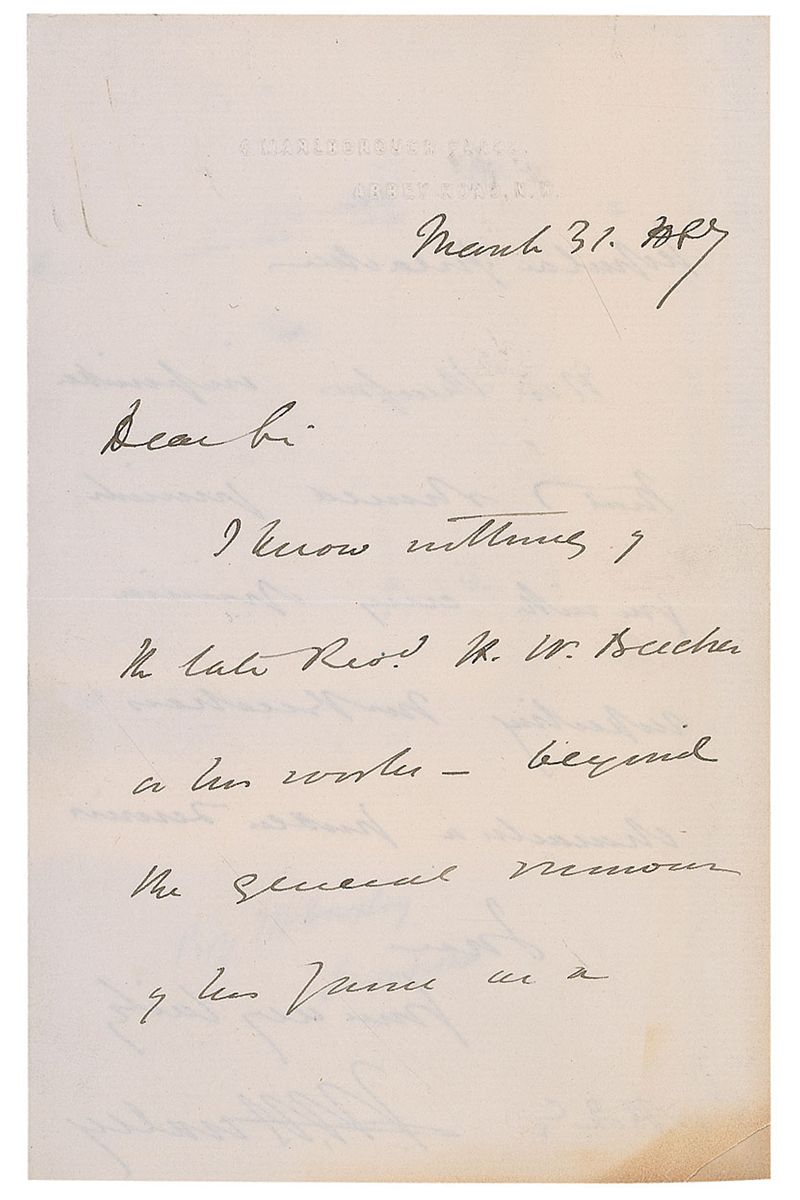 4 MARLBOROUGH PLACE,
ABBEY ROAD, N.W.
March 31. 1887
Dear Sir
I know nothing of
the late Revd. H. W. Beecher
or his works – beyond
the general rumour
of his fame as a